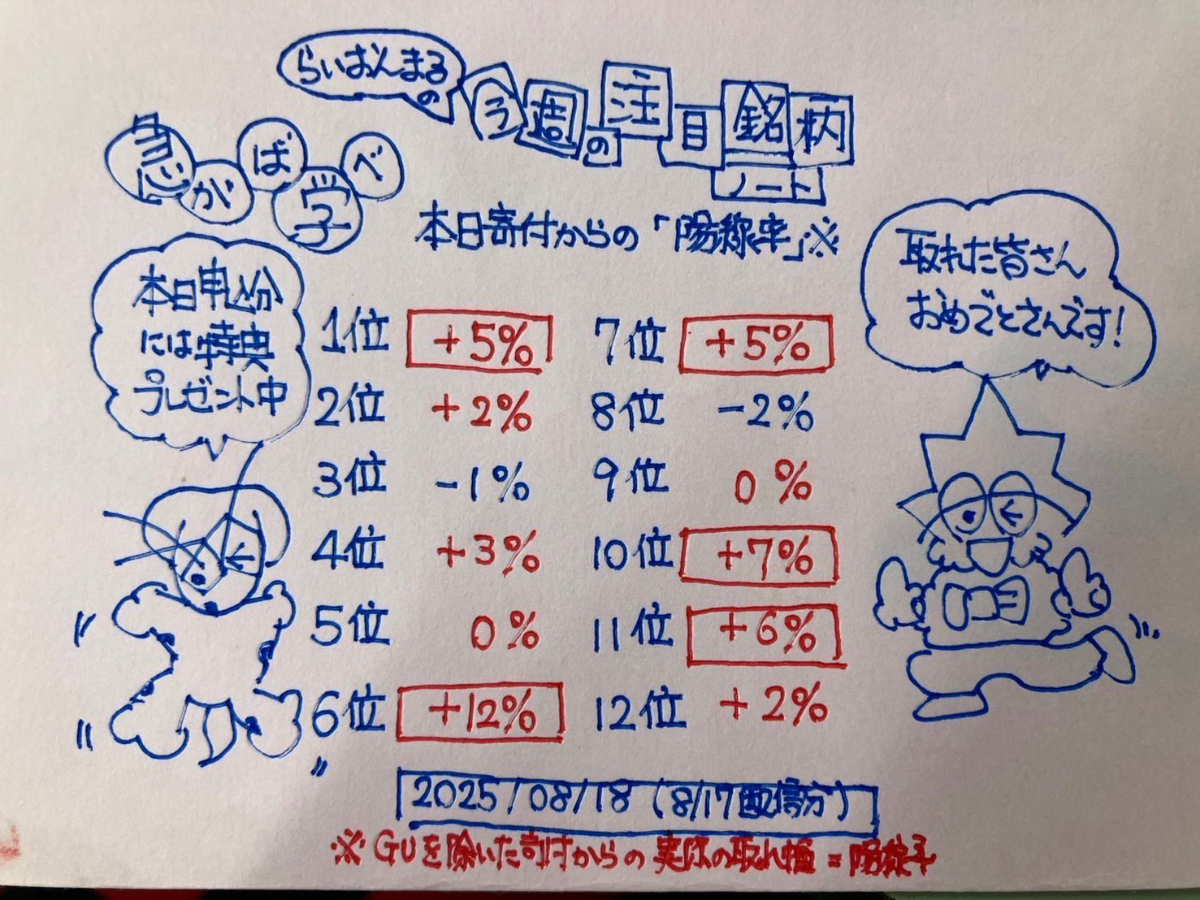 らいおんまるの
今週の注目銘柄
ノート
急がば学べ
本日寄付からの「陽線率」※
本日申込分
には特典
プレゼント中
取れた皆さん
おめでとさんです!
1位 +5%
2位 +2%
3位 -1%
4位 +3%
5位 0%
6位 +12%
7位 +5%
8位 -2%
9位 0%
10位 +7%
11位 +6%
12位 +2%
2025/08/18(8/17配信分)
※GUを除いた寄付からの実際の取れ幅=陽線率